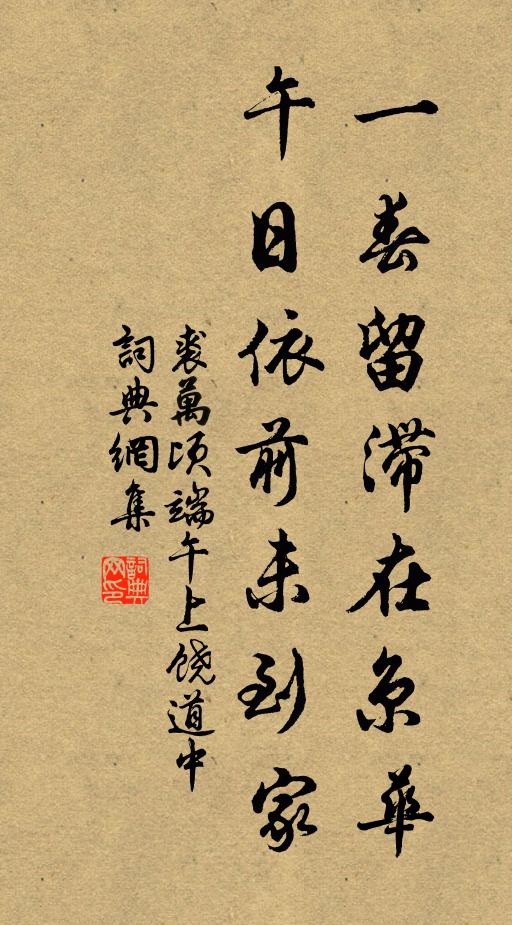 一春留滯在京華
午日依前未到家
裘萬頃端午上饒道中
詞典網集
詞典网印